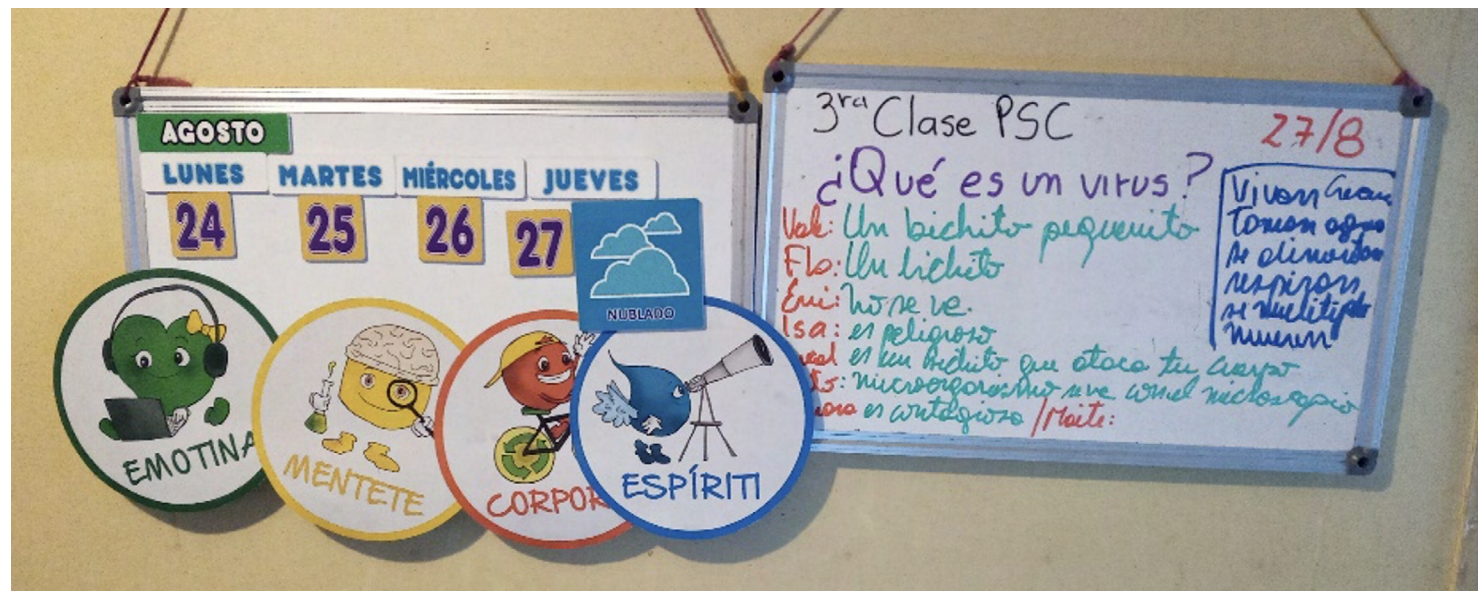 AGOSTO
LUNES MARTES MIÉRCOLES JUEVES
24 25 26 27
NUBLADO
EMOTINA
MENTETE
CORPOR
ESPÍRITI
3ra Clase PSC
27/8
¿Qué es un virus?
Un bichito pequeñito
Flo: Un bichito
Emi: no se ve.
Isa: es peligroso
es un bichito que ataca tu cuerpo
microorganismo se ve con el microscopio
es contagioso / Maite:
Viven
Toman agua
se alimentan
respiran
se multipl
mueren